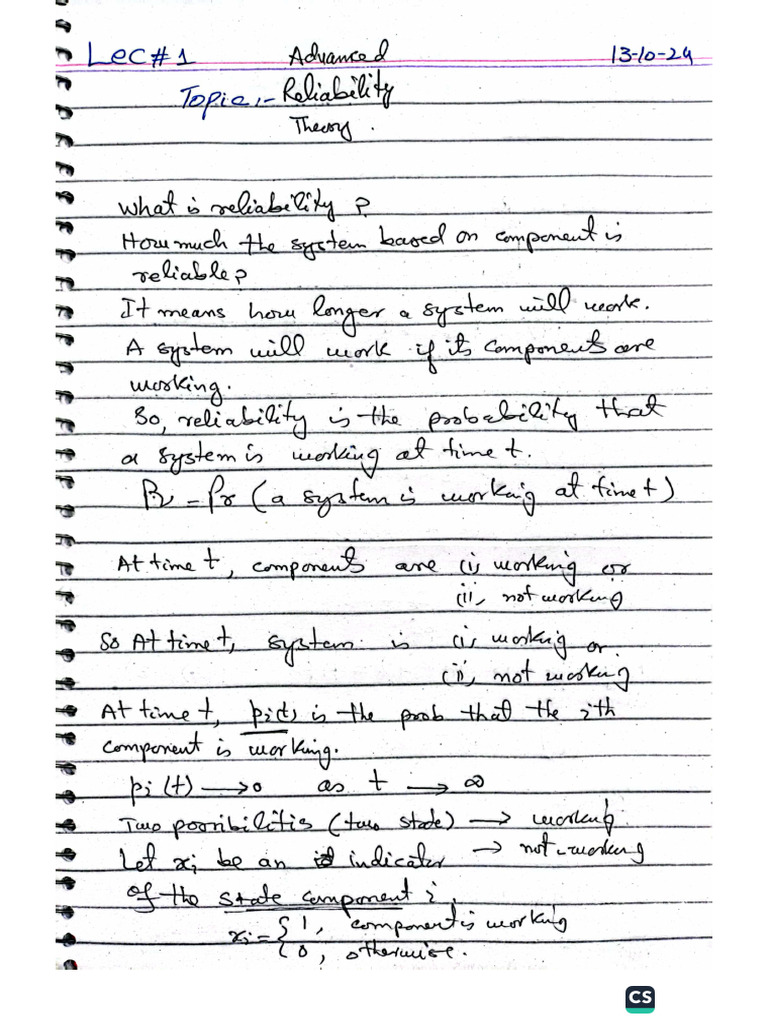 Lec#1 Advanced 13-10-24
Topic:- Reliability
Theory.
What is reliability?
How much the system based on component is
reliable?
It means how longer a system will work.
A system will work if its components are
working.
So, reliability is the probability that
a system is working at time t.
= Pr (a system is working at time t)
At time t, components are (i) working or
(ii) not working
So At time t, system is (i) working or
(ii) not working
At time t, pi(t) is the prob that the ith
component is working.
pi(t) → 0 as t → ∞
Two possibilitis (two state) → working
Let xi be an indicator → not-working
of the state component i.
xi = { 1, component is working
{ 0, otherwise.
CS